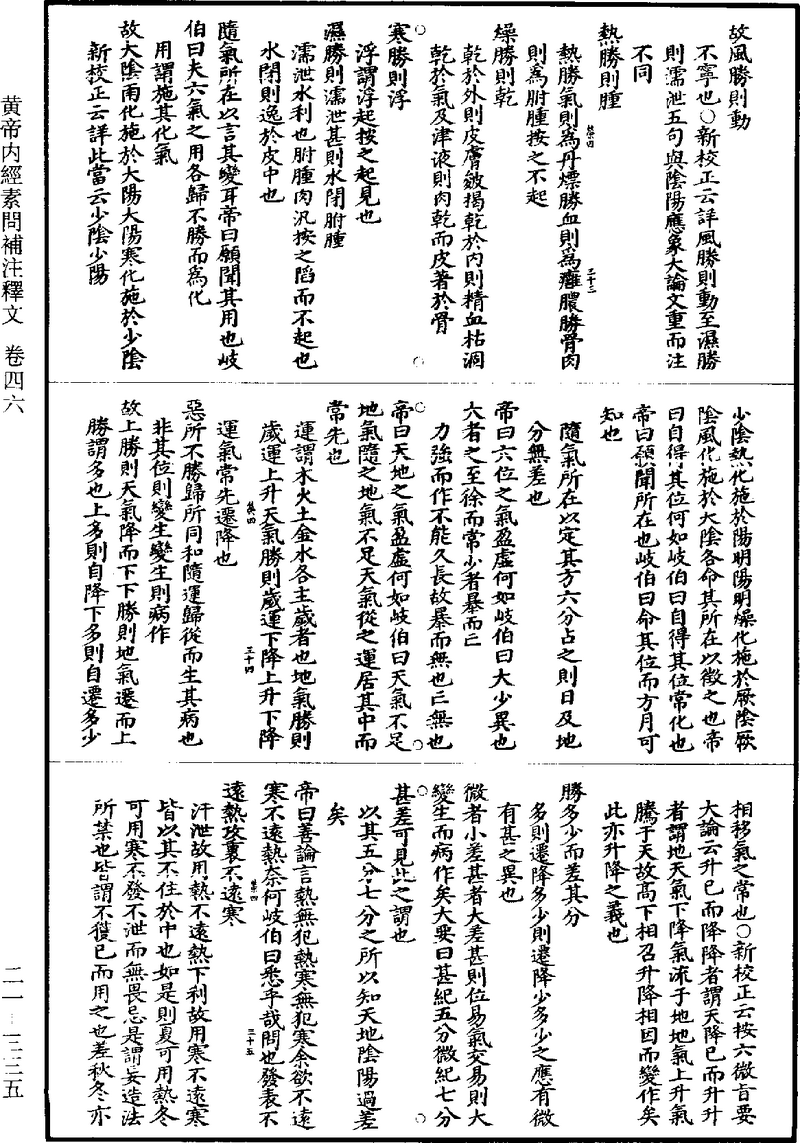 黄帝内經素問補注釋文　卷四六
二一—三三五
故風勝則動
不寧也○新校正云詳風勝則動至濕勝
則濡泄五句與陰陽應象大論文重而注
不同
熱勝則腫
熱勝氣則為丹熛勝血則為癰膿勝骨肉
則為胕腫按之不起
燥勝則乾
乾於外則皮膚皴揭乾於内則精血枯涸
乾於氣及津液則肉乾而皮著於骨
寒勝則浮
浮謂浮起按之起見也
濕勝則濡泄甚則水閉胕腫
濡泄水利也胕腫肉泛按之陷而不起也
水閉則逸於皮中也
隨氣所在以言其變耳帝曰願聞其用也岐
伯曰夫六氣之用各歸不勝而為化
用謂施其化氣
故大陰雨化施於大陽大陽寒化施於少陰
新校正云詳此當云少陰少陽
少陰熱化施於陽明陽明燥化施於厥陰厥
陰風化施於大陰各命其所在以徵之也帝
曰自得其位何如岐伯曰自得其位常化也
帝曰願聞所在也岐伯曰命其位而方月可
知也
隨氣所在以定其方六分占之則日及地
分無差也
帝曰六位之氣盈虛何如岐伯曰大少異也
大者之至徐而常少者暴而亡
力強而作不能久長故暴而無也亡無也
帝曰天地之氣盈虛何如岐伯曰天氣不足
地氣隨之地氣不足天氣從之運居其中而
常先也
運謂木火土金水各主歲者也地氣勝則
歲運上升天氣勝則歲運下降上升下降
運氣常先遷降也
惡所不勝歸所同和隨運歸從而生其病也
非其位則變生變生則病作
故上勝則天氣降而下下勝則地氣遷而上
勝謂多也上多則自降下多則自遷多少
相移氣之常也○新校正云按六微旨要
大論云升已而降降者謂天降已而升升
者謂地天氣下降氣流于地地氣上升氣
騰于天故高下相召升降相因而變作矣
此亦升降之義也
勝多少而差其分
多則遷降多少則遷降少多少之應有微
有甚之異也
微者小差甚者大差甚則位易氣交易則大
變生而病作矣大要曰甚紀五分微紀七分
甚差可見此之謂也
以其五分七分之所以知天地陰陽過差
矣
帝曰善論言熱無犯熱寒無犯寒余欲不遠
寒不遠熱奈何岐伯曰悉乎哉問也發表不
遠熱攻裏不遠寒
汗泄故用熱不遠熱下利故用寒不遠寒
皆以其不住於中也如是則夏可用熱冬
可用寒不發不泄而無畏忌是謂妄造法
所禁也皆謂不獲已而用之也差秋冬亦